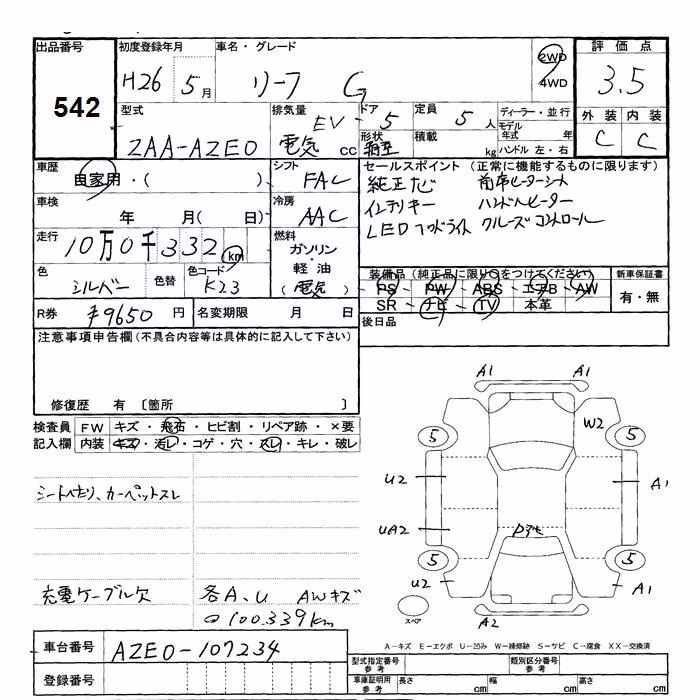 出品番号 初度登録年月 車名・グレード 評価点
542 H26 5月 リーフ G 2WD 4WD 3.5
型式 排気量 ドア 定員 ディーラー・並行 外装 内装
ZAA-AZE0 EV 電気 cc 5 5人 モデル年式 年 C C
形状 積載 kg ハンドル 左・右
車歴 自家用・( ) シフト FAC セールスポイント (正常に機能するものに限ります)
純正ナビ 前席ヒーターシート
車検 年 月( 日) 冷房 AAC インテリキー ハンドルヒーター
LEDヘッドライト クルーズコントロール
走行 10万0千332km 燃料 ガソリン・軽油 (電気)
色 シルバー 色替 色コード K23
装備品(純正品に限り○をつけてください) 新車保証書
PS・PW・ABS・エアB・AW 有・無
SR・ナビ・TV 本革
R券 ¥9650円 名変期限 月 日 後日品
注意事項申告欄(不具合内容等は具体的に記入して下さい)
修復歴 有 〔箇所 〕
検査員 FW キズ・飛石・ヒビ割・リペア跡・×要
記入欄 内装 キズ・汚レ・コゲ・穴・スレ・キレ・破レ
A1 A1
W2
5 5
シートへたり、カーペットスレ
U2 A1
UA2
5 5
充電ケーブル欠 各A、U AWキズ
U2 A1
100.339km
スペア A2
A-キズ E-エクボ U-凹み W-補修跡 S-サビ C-腐食 XX-交換済
車台番号 AZE0-107234
型式指定番号 参考 類別区分番号 参考
登録番号
車庫証明用 参考 長さ cm 幅 cm 高さ cm